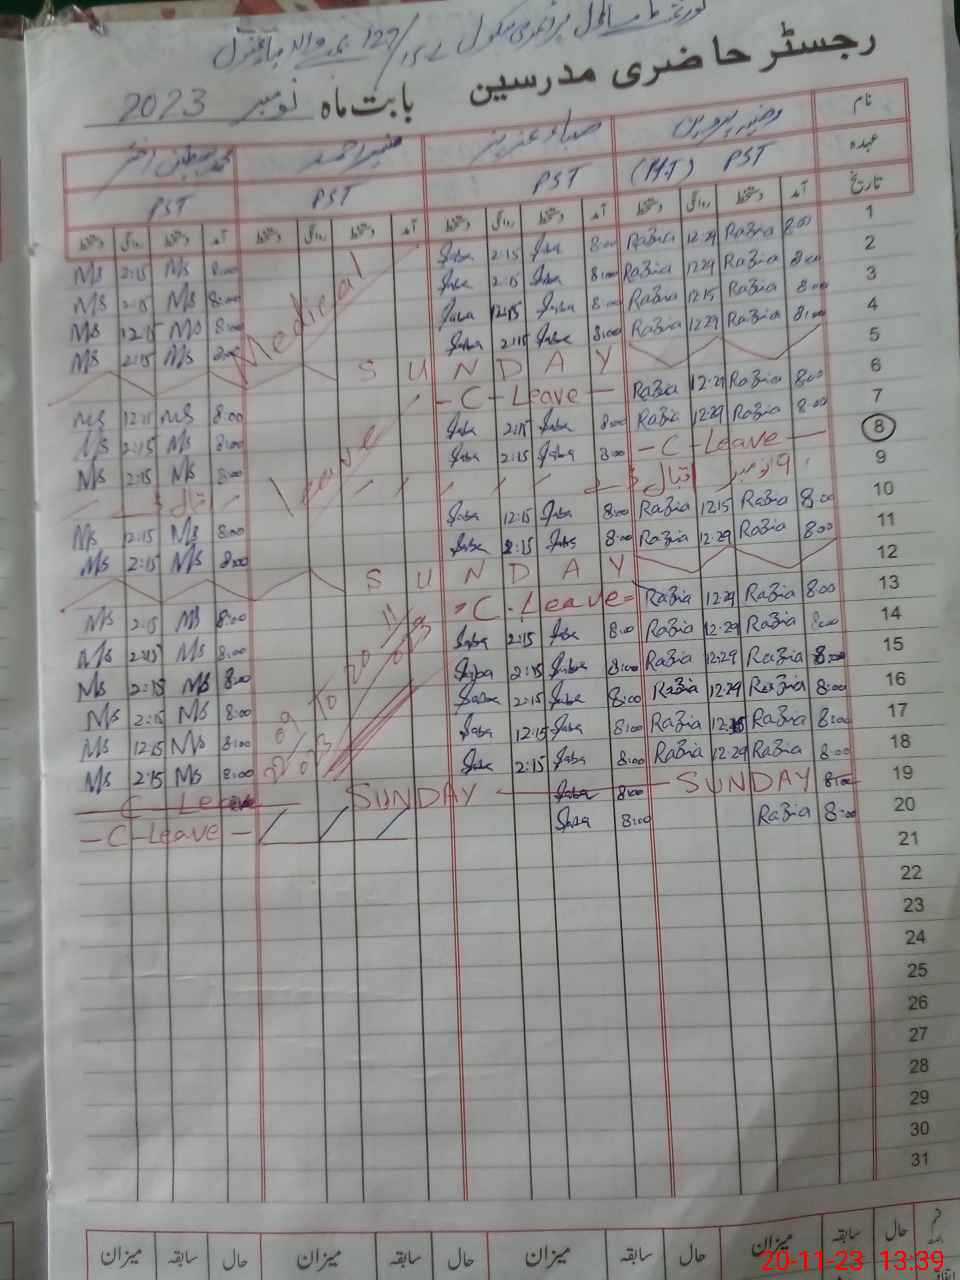 گورنمنٹ ماڈل پرائمری سکول 127/15-L
رجسٹر حاضری مدرسین بابت ماہ نومبر 2023
نام رضیہ پروین صباء عزیز منیر احمد
عہدہ PST (H.T) PST PST PST
تاریخ آمد دستخط روانگی دستخط آمد دستخط روانگی دستخط آمد دستخط روانگی دستخط آمد دستخط روانگی دستخط
1 8:00 RaBia 12:29 RaBia 8:00 Saba 2:15 Saba Medical 8:00 MS 2:15 MS
2 8:00 RaBia 12:29 RaBia 8:00 Saba 2:15 Saba 8:00 MS 2:15 MS
3 8:00 RaBia 12:15 RaBia 8:00 Saba 12:15 Saba 8:00 MS 12:15 MS
4 8:00 RaBia 12:29 RaBia 8:00 Saba 2:15 Saba 8:00 MS 2:15 MS
5 SUNDAY
6 8:00 RaBia 12:29 RaBia - C - Leave - Leave 8:00 MS 12:15 MS
7 8:00 RaBia 12:29 RaBia 8:00 Saba 2:15 Saba 8:00 MS 2:15 MS
8 - C - Leave - 8:00 Saba 2:15 Saba 8:00 MS 2:15 MS
9 9 نومبر اقبال ڈے اقبال ڈے
10 8:00 RaBia 12:15 RaBia 8:00 Saba 12:15 Saba 8:00 MS 12:15 MS
11 8:00 RaBia 12:29 RaBia 8:00 Saba 2:15 Saba 8:00 MS 2:15 MS
12 SUNDAY
13 8:00 RaBia 12:29 RaBia - C - Leave - 8:00 MS 2:15 MS
14 8:00 RaBia 12:29 RaBia 8:00 Saba 2:15 Saba 8:00 MS 2:15 MS
15 8:00 RaBia 12:29 RaBia 8:00 Saba 2:15 Saba 8:00 MS 2:15 MS
16 8:00 RaBia 12:29 RaBia 8:00 Saba 2:15 Saba 8:00 MS 2:15 MS
17 8:00 RaBia 12:15 RaBia 8:00 Saba 12:15 Saba 8:00 MS 12:15 MS
18 8:00 RaBia 12:29 RaBia 8:00 Saba 2:15 Saba 8:00 MS 2:15 MS
19 8:00 SUNDAY 8:00 Saba SUNDAY C Leave
20 8:00 RaBia 8:00 Saba - C - Leave -
21
22
23
24
25
26
27
28
29
30
31
حال سابقہ میزان حال سابقہ میزان حال سابقہ میزان حال سابقہ میزان
20-11-23 13:39